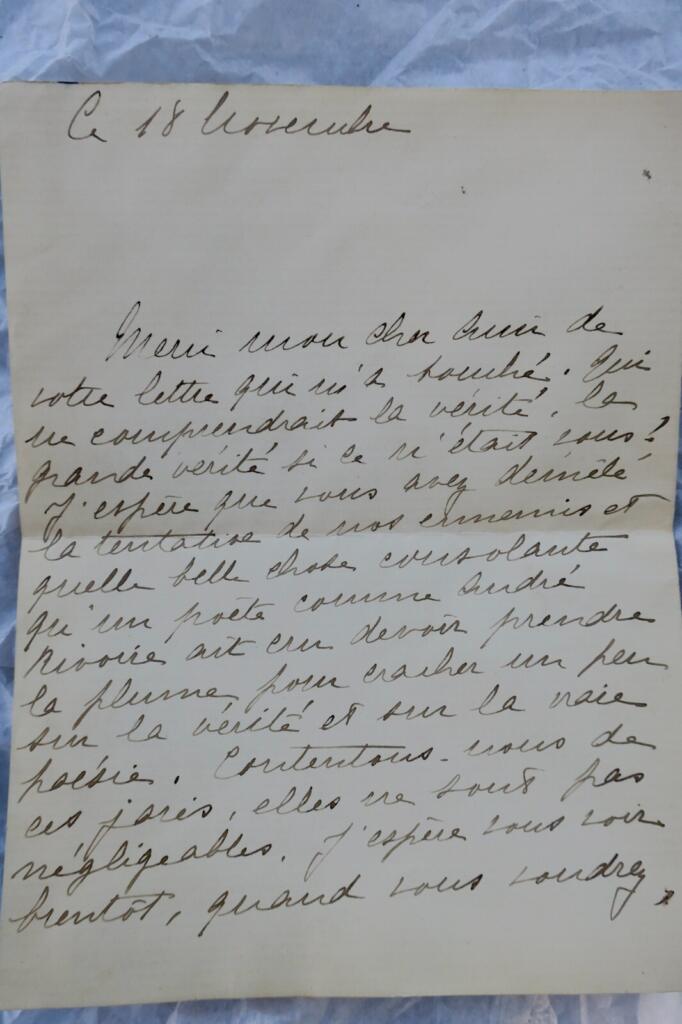 Ce 18 Novembre
Merci mon cher Ami de
votre lettre qui m'a touché. Qui
ne comprendrait la vérité, la
grande vérité si ce n'était vous?
J'espère que vous avez démêlé
la tentative de nos ennemis et
quelle belle chose consolante
qu'un poète comme André
Rivoire ait cru devoir prendre
la plume pour cracher un peu
sur la vérité et sur la vraie
poésie. Contentons-nous de
ces joies, elles ne sont pas
négligeables. J'espère vous voir
bientôt, quand vous voudrez,